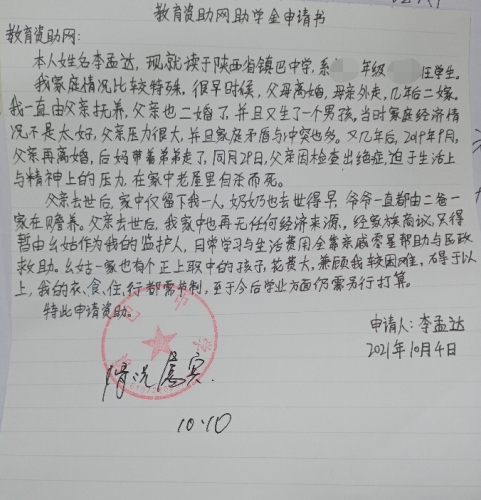 教育资助网助学金申请书
教育资助网:
本人姓名李孟达,现就读于陕西省镇巴中学,系 年级 在学生。
我家庭情况比较特殊,很早时候,父母离婚,母亲外走,几年后二嫁。
我一直由父亲抚养,父亲也二婚了,并且又生了一个男孩,当时家庭经济情
况不是太好,父亲压力很大,并且家庭矛盾与冲突也多。又几年后,2019年9月,
父亲再离婚,后妈带着弟弟走了,同月29日,父亲因检查出绝症,迫于生活上
与精神上的压力,在家中老屋里自杀而死。
父亲去世后,家中仅留下我一人,奶奶也去世得早,爷爷一直都由二爸一
家在赡养。父亲去世后,我家中也再无任何经济来源,经家族商议,只得
暂由幺姑作为我的监护人,日常学习与生活费用全靠亲戚零星帮助与民政
救助。幺姑一家也有个正上职中的孩子,花费大,兼顾我较困难,碍于以
上,我的衣、食、住、行都需节制,至于今后学业方面仍需另行打算。
特此申请资助。
申请人:李孟达
2021年10月4日
情况属实
10.10